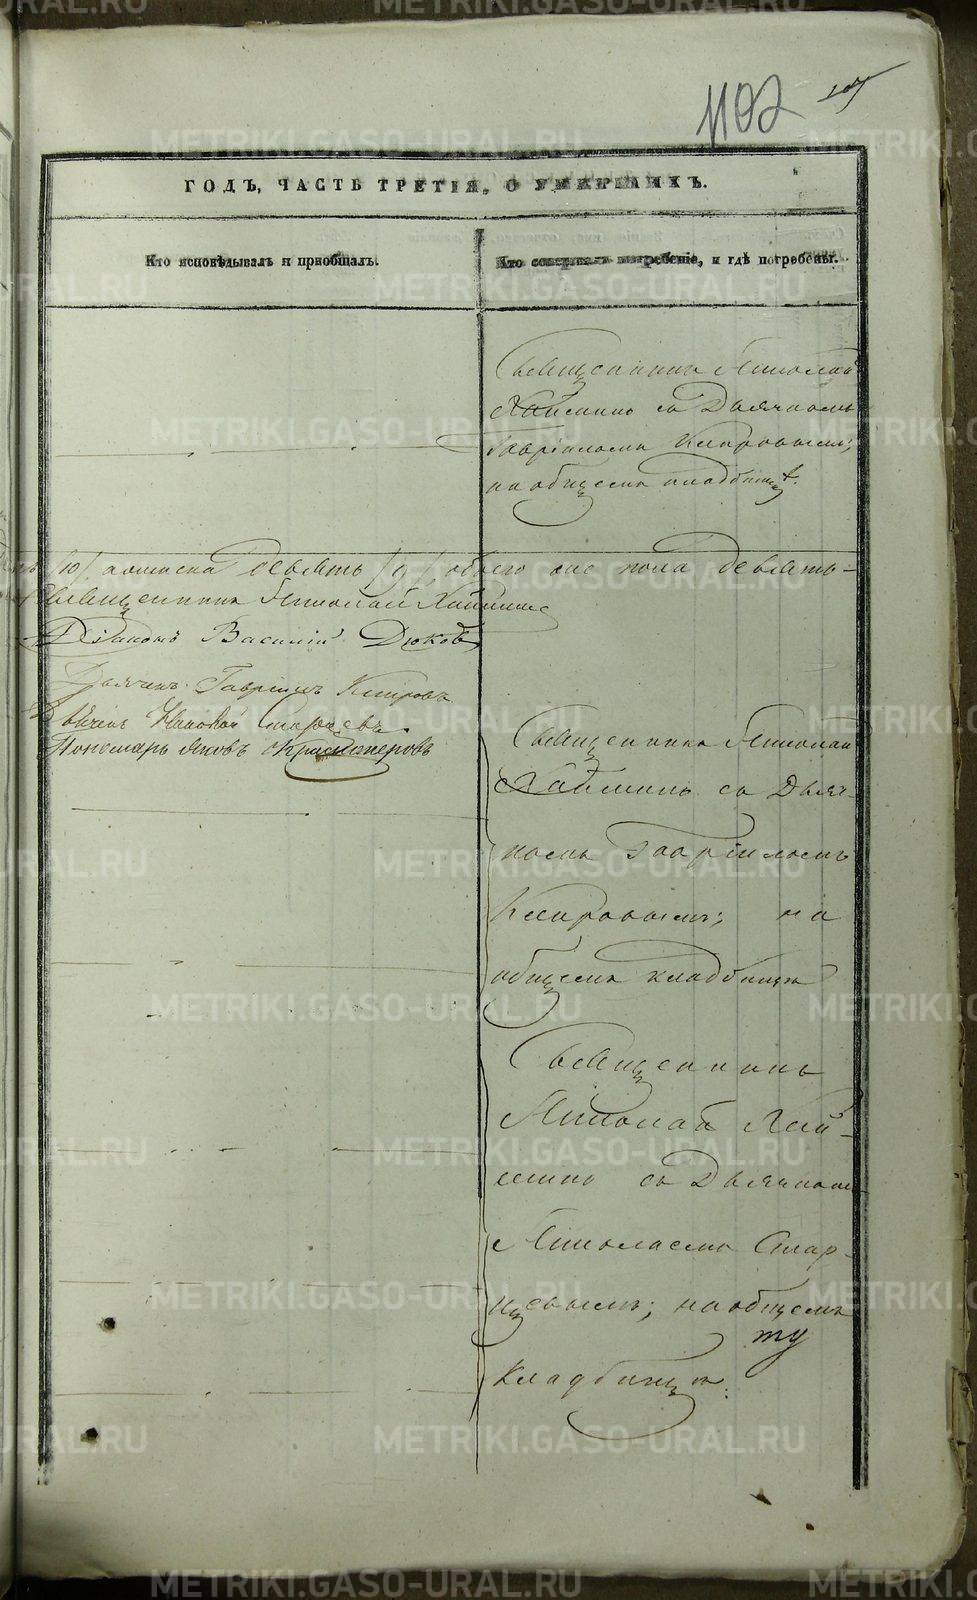 1102
ГОДЪ, ЧАСТЬ ТРЕТІЯ, О УМЕРШИХЪ.
Кто исповѣдывалъ и пріобщалъ.
Кто совершалъ погребеніе, и гдѣ погребены.
Священникъ Николай
Хаймино съ Дьячкомъ
Гавріиломъ Кипровымъ;
на общемъ кладбищѣ.
/10/, женска девять /9/, обоего же пола девять-
Священникъ Николай Хаймино
Діаконъ Василій Дюковъ
Дьячекъ Гавріилъ Кипровъ
Дьячекъ Николай Старцевъ
Пономарь Яковъ Красноперовъ
Священникъ Николай
Хаймино съ Дьяч-
комъ Гавріиломъ
Кипровымъ; на
общемъ кладбищѣ
Священникъ
Николай Хай-
мино съ Дьячкомъ
Николаемъ Стар-
цевымъ; на общемъ
ту
кладбищѣ.
METRIKI.GASO-URAL.RU